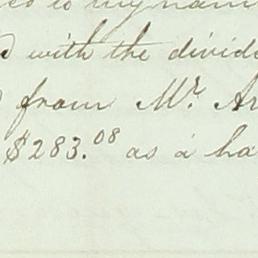 to my nam
with the divid
from Mr. Ar
$283.08 as a ha